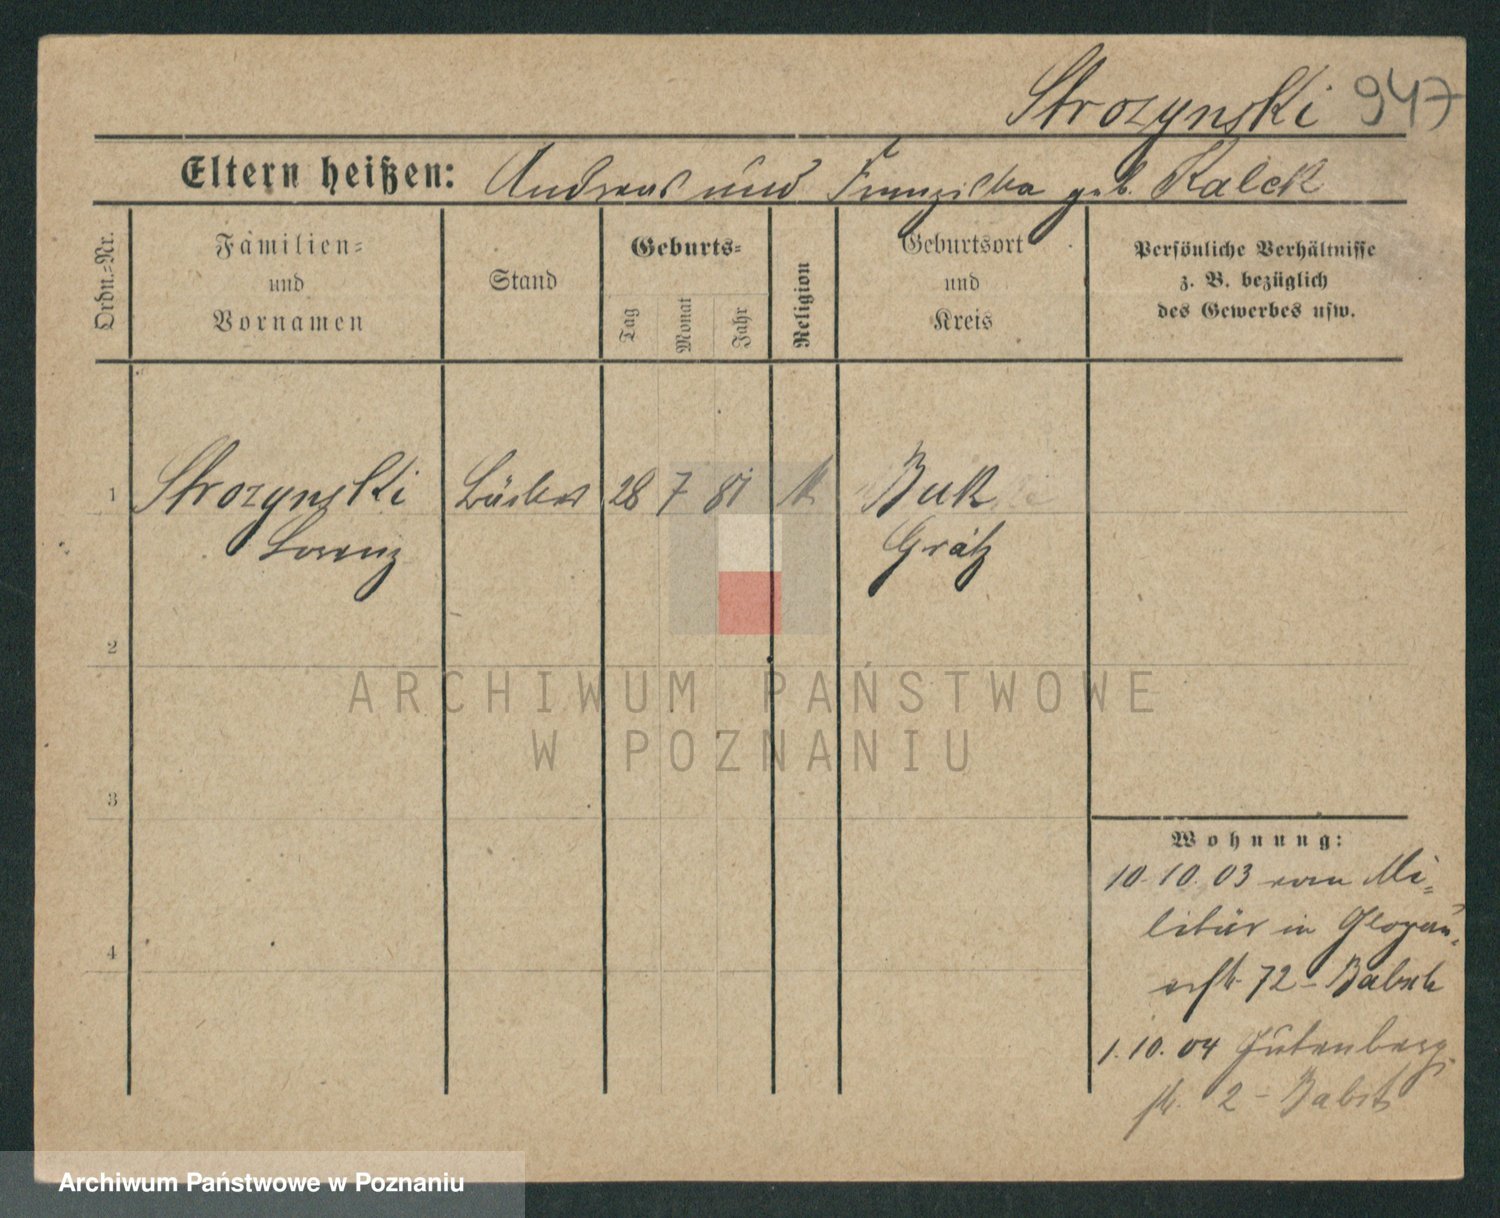 Strozynski 947
Eltern heißen: Andreas und Franziska geb. Kalck
Ordn.=Nr.
Familien=
und
Vornamen
Stand
Geburts=
Tag
Monat
Jahr
Religion
Geburtsort
und
Kreis
Persönliche Verhältnisse
z. B. bezüglich
des Gewerbes usw.
1 Strozynski Bäcker 28 7 81 k Buk
Lorenz Grätz
2
3
4
Wohnung:
10.10.03 vom Mi=
litär in Glogau,
72 -
1.10.04 Gutenberg
str. 2 -
ARCHIWUM PAŃSTWOWE
W POZNANIU
Archiwum Państwowe w Poznaniu